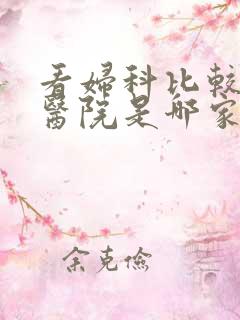 看婦科比較
醫院是哪家
余克儉